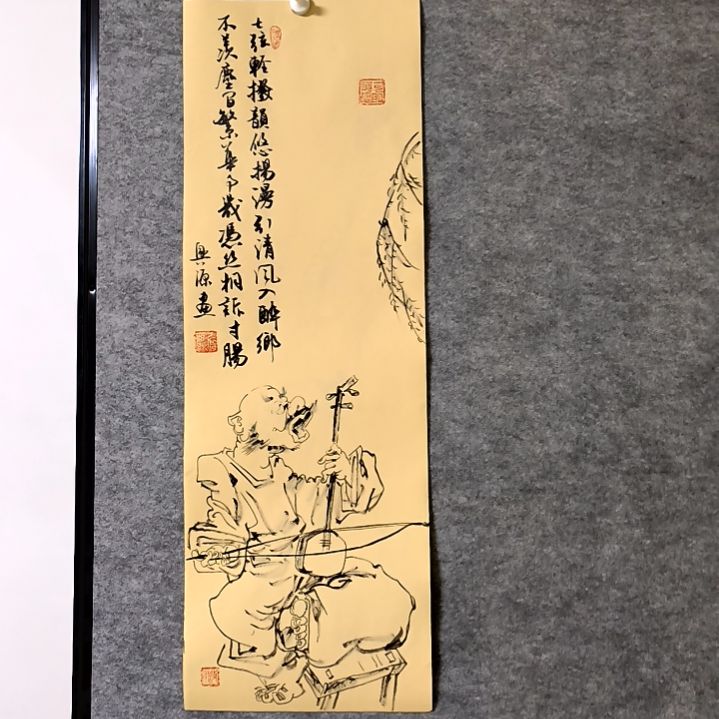 七弦輕撥韻悠揚漫引清風入醉鄉
不羨塵间繁華事憑丝桐訴寸腸
興源畫